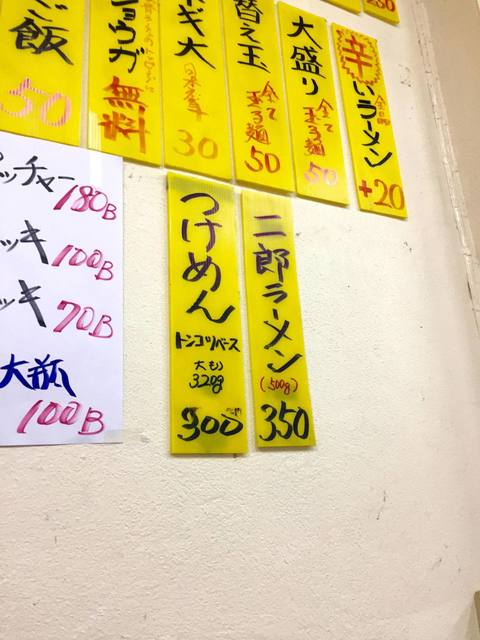 ご飯
50
ョウガ
無料
ネギ大
30
替え玉
全て
玉子麺
50
大盛り
全て
玉子麺
50
辛いラーメン
+20
ッチャー
180B
ッキ
100B
ッキ
70B
大瓶
100B
つけめん
トンコツベース
大もり
320g
300
二郎ラーメン
(500g)
350